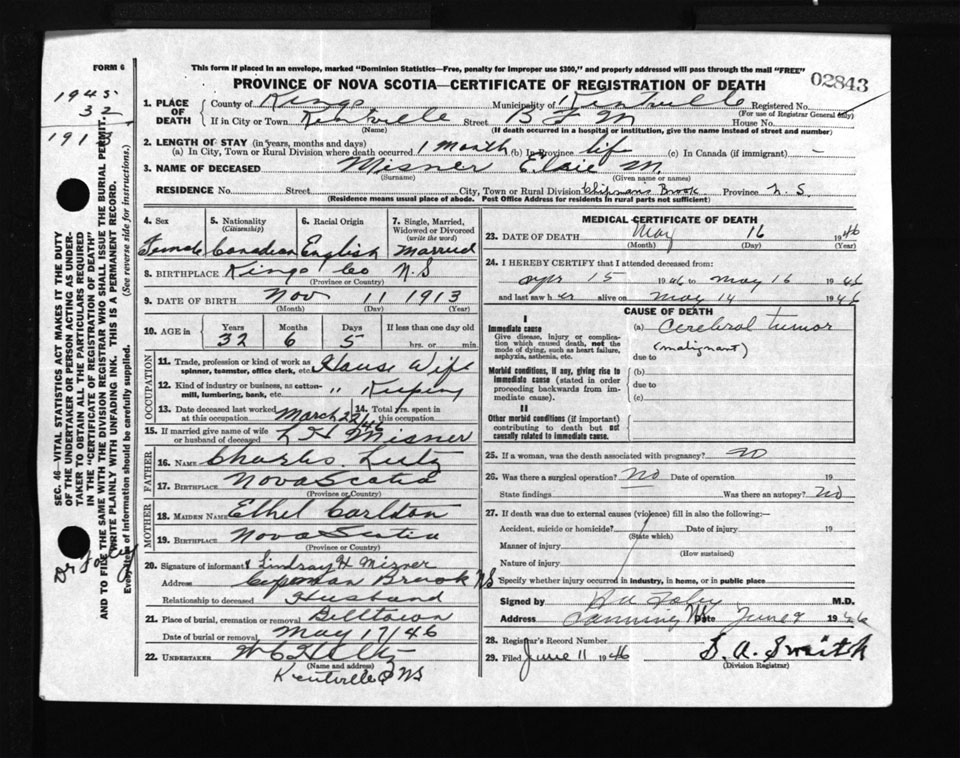 FORM 6
This form if placed in an envelope, marked "Dominion Statistics—Free, penalty for improper use $300," and properly addressed will pass through the mail "FREE"
PROVINCE OF NOVA SCOTIA—CERTIFICATE OF REGISTRATION OF DEATH
02843
1945
32
191
SEC. 46—VITAL STATISTICS ACT MAKES IT THE DUTY
OF THE UNDERTAKER OR PERSON ACTING AS UNDER-
TAKER TO OBTAIN ALL THE PARTICULARS REQUIRED
IN THE "CERTIFICATE OF REGISTRATION OF DEATH"
AND TO FILE THE SAME WITH THE DIVISION REGISTRAR WHO SHALL ISSUE THE BURIAL PERMIT.
WRITE PLAINLY WITH UNFADING INK. THIS IS A PERMANENT RECORD.
Every item of information should be carefully supplied. (See reverse side for instructions.)
1. PLACE OF DEATH
County of Kings Municipality of Kentville Registered No.
(For use of Registrar General only)
If in City or Town Kentville Street B F M House No.
(Name) (If death occurred in a hospital or institution, give the name instead of street and number)
2. LENGTH OF STAY (in years, months and days)
(a) In City, Town or Rural Division where death occurred 1 month (b) In Province life (c) In Canada (if immigrant) —
3. NAME OF DECEASED Misner Elsie M.
(Surname) (Given name or names)
RESIDENCE No. Street City, Town or Rural Division Chipmans Brook Province N. S.
(Residence means usual place of abode. Post Office Address for residents in rural parts not sufficient)
4. Sex
Female
5. Nationality
(Citizenship)
Canadian
6. Racial Origin
English
7. Single, Married,
Widowed or Divorced
(write the word)
Married
8. BIRTHPLACE Kings Co N.S
(Province or Country)
9. DATE OF BIRTH Nov 11 1913
(Month) (Day) (Year)
10. AGE in Years Months Days If less than one day old
32 6 5 hrs. or min.
OCCUPATION
11. Trade, profession or kind of work as
spinner, teamster, office clerk, etc. House Wife
12. Kind of industry or business, as cotton-
mill, lumbering, bank, etc. " Keeping
13. Date deceased last worked
at this occupation March 22/46
14. Total yrs. spent in
this occupation
15. If married give name of wife
or husband of deceased L H Misner
FATHER
16. NAME Charles Lutz
17. BIRTHPLACE Nova Scotia
(Province or Country)
MOTHER
18. MAIDEN NAME Ethel Carldon
19. BIRTHPLACE Nova Scotia
(Province or Country)
20. Signature of informant Lindsay H Misner
Address Brook NS
Relationship to deceased Husband
21. Place of burial, cremation or removal Billtown
Date of burial or removal May 17/46
22. UNDERTAKER
(Name and address)
Kentville NS
MEDICAL CERTIFICATE OF DEATH
23. DATE OF DEATH May 16 1946
(Month) (Day) (Year)
24. I HEREBY CERTIFY that I attended deceased from:
Apr 15 1946 to May 16 1946
and last saw her alive on May 14 1946
CAUSE OF DEATH
I
Immediate cause
Give disease, injury or complica-
tion which caused death, not the
mode of dying, such as heart failure,
asphyxia, asthenia, etc.
(a) Cerebral tumor
(malignant)
due to
Morbid conditions, if any, giving rise to
immediate cause (stated in order
proceeding backwards from im-
mediate cause).
(b)
due to
(c)
II
Other morbid conditions (if important)
contributing to death but not
causally related to immediate cause.
25. If a woman, was the death associated with pregnancy? no
26. Was there a surgical operation? No Date of operation 19
State findings Was there an autopsy? No
27. If death was due to external causes (violence) fill in also the following:—
Accident, suicide or homicide? Date of injury 19
(State which)
Manner of injury
(How sustained)
Nature of injury
Specify whether injury occurred in industry, in home, or in public place
Signed by M.D.
Address Canning NS Date June 9 1946
28. Registrar's Record Number
29. Filed June 11 1946 S. A. Smith
(Division Registrar)